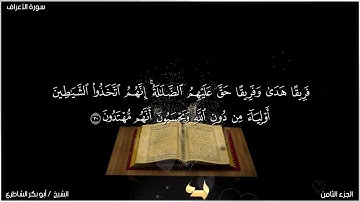 سورة الأعراف
فَرِيقًا هَدَىٰ وَفَرِيقًا حَقَّ عَلَيْهِمُ ٱلضَّلَٰلَةُ ۗ إِنَّهُمُ ٱتَّخَذُوا۟ ٱلشَّيَٰطِينَ
أَوْلِيَآءَ مِن دُونِ ٱللَّهِ وَيَحْسَبُونَ أَنَّهُم مُّهْتَدُونَ ٣٠
الجزء الثامن
الشيخ / أبو بكر الشاطري